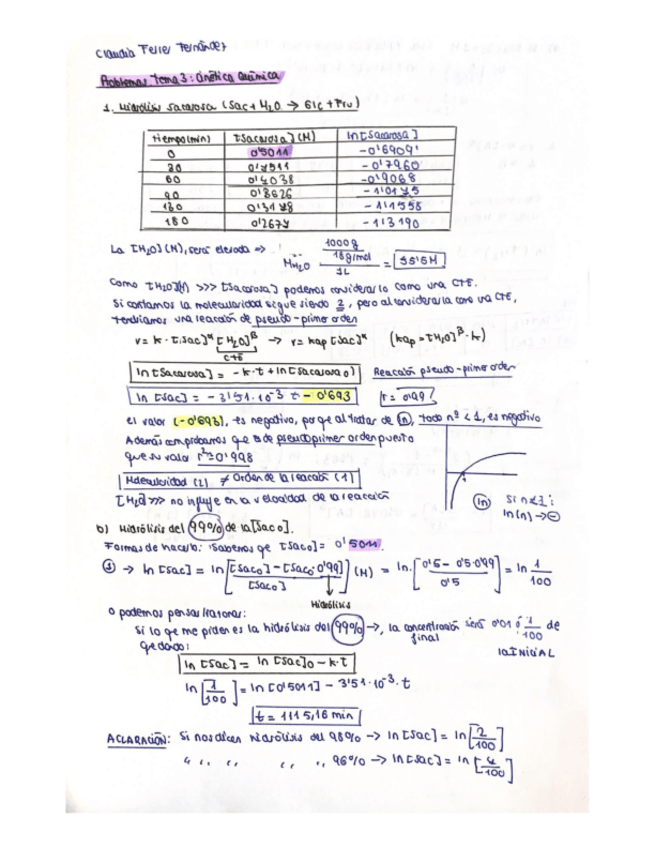 Claudia Ferrer Fernández
Problemas Tema 3: Cinética Química
1. Hidrólisis sacarosa (Sac + H₂O → Glc + Fru)
Tiempo (min) [Sacarosa] (M) ln [Sacarosa]
0 0'5011 -0'6909
30 0'4511 -0'7960
60 0'4038 -0'9068
90 0'3626 -1'0145
130 0'3148 -1'1558
180 0'267 -1'3190
La [H₂O] (M), será elevada ⇒ M H₂O = 1000g / 18g/mol / 1L = 55'5 M
Como [H₂O] >>> [Sacarosa] podemos considerarlo como una CTE.
Si contamos la molecularidad sigue siendo 2, pero al considerarla como una CTE,
tendríamos una reacción de pseudo-primer orden
v = k · [sac]^α [H₂O]^β → v = kap [sac]^α (kap = [H₂O]^β · k)
CTE
ln [Sacarosa] = -k·t + ln [Sacarosa₀] Reacción pseudo-primer orden
ln [sac] = -3'51·10⁻³ t - 0'693 r = 0'99
El valor (-0'693), es negativo, porque al tratar de ln, todo nº < 1, es negativo
Además comprobamos que es de pseudoprimer orden puesto
que su valor r² = 0'998
Molecularidad (2) ≠ Orden de la reacción (1)
[H₂O] >>> no influye en la velocidad de la reacción
ln Si n<1:
ln(n) → ⊖
b) Hidrólisis del 99% de la [Sac₀].
Formas de hacerlo: Sabemos qe [Sac₀] = 0'5011.
① → ln [sac] = ln [[Sac₀] - [Sac₀·0'99] / [Sac₀]] (M) = ln [0'5 - 0'5·0'99 / 0'5] = ln 1/100
Hidrólisis
O podemos pensar
Si lo que me piden es la hidrólisis del 99% →, la concentración final será 0'01 ó 1/100 de la INICIAL
quedando:
ln [sac] = ln [sac]₀ - k·t
ln [1/100] = ln [0'5011] - 3'51·10⁻³ · t
t = 1115,16 min
ACLARACIÓN: Si nos dicen hidrólisis del 98% → ln [sac] = ln [2/100]
" " " " " 96% → ln [sac] = ln [4/100]